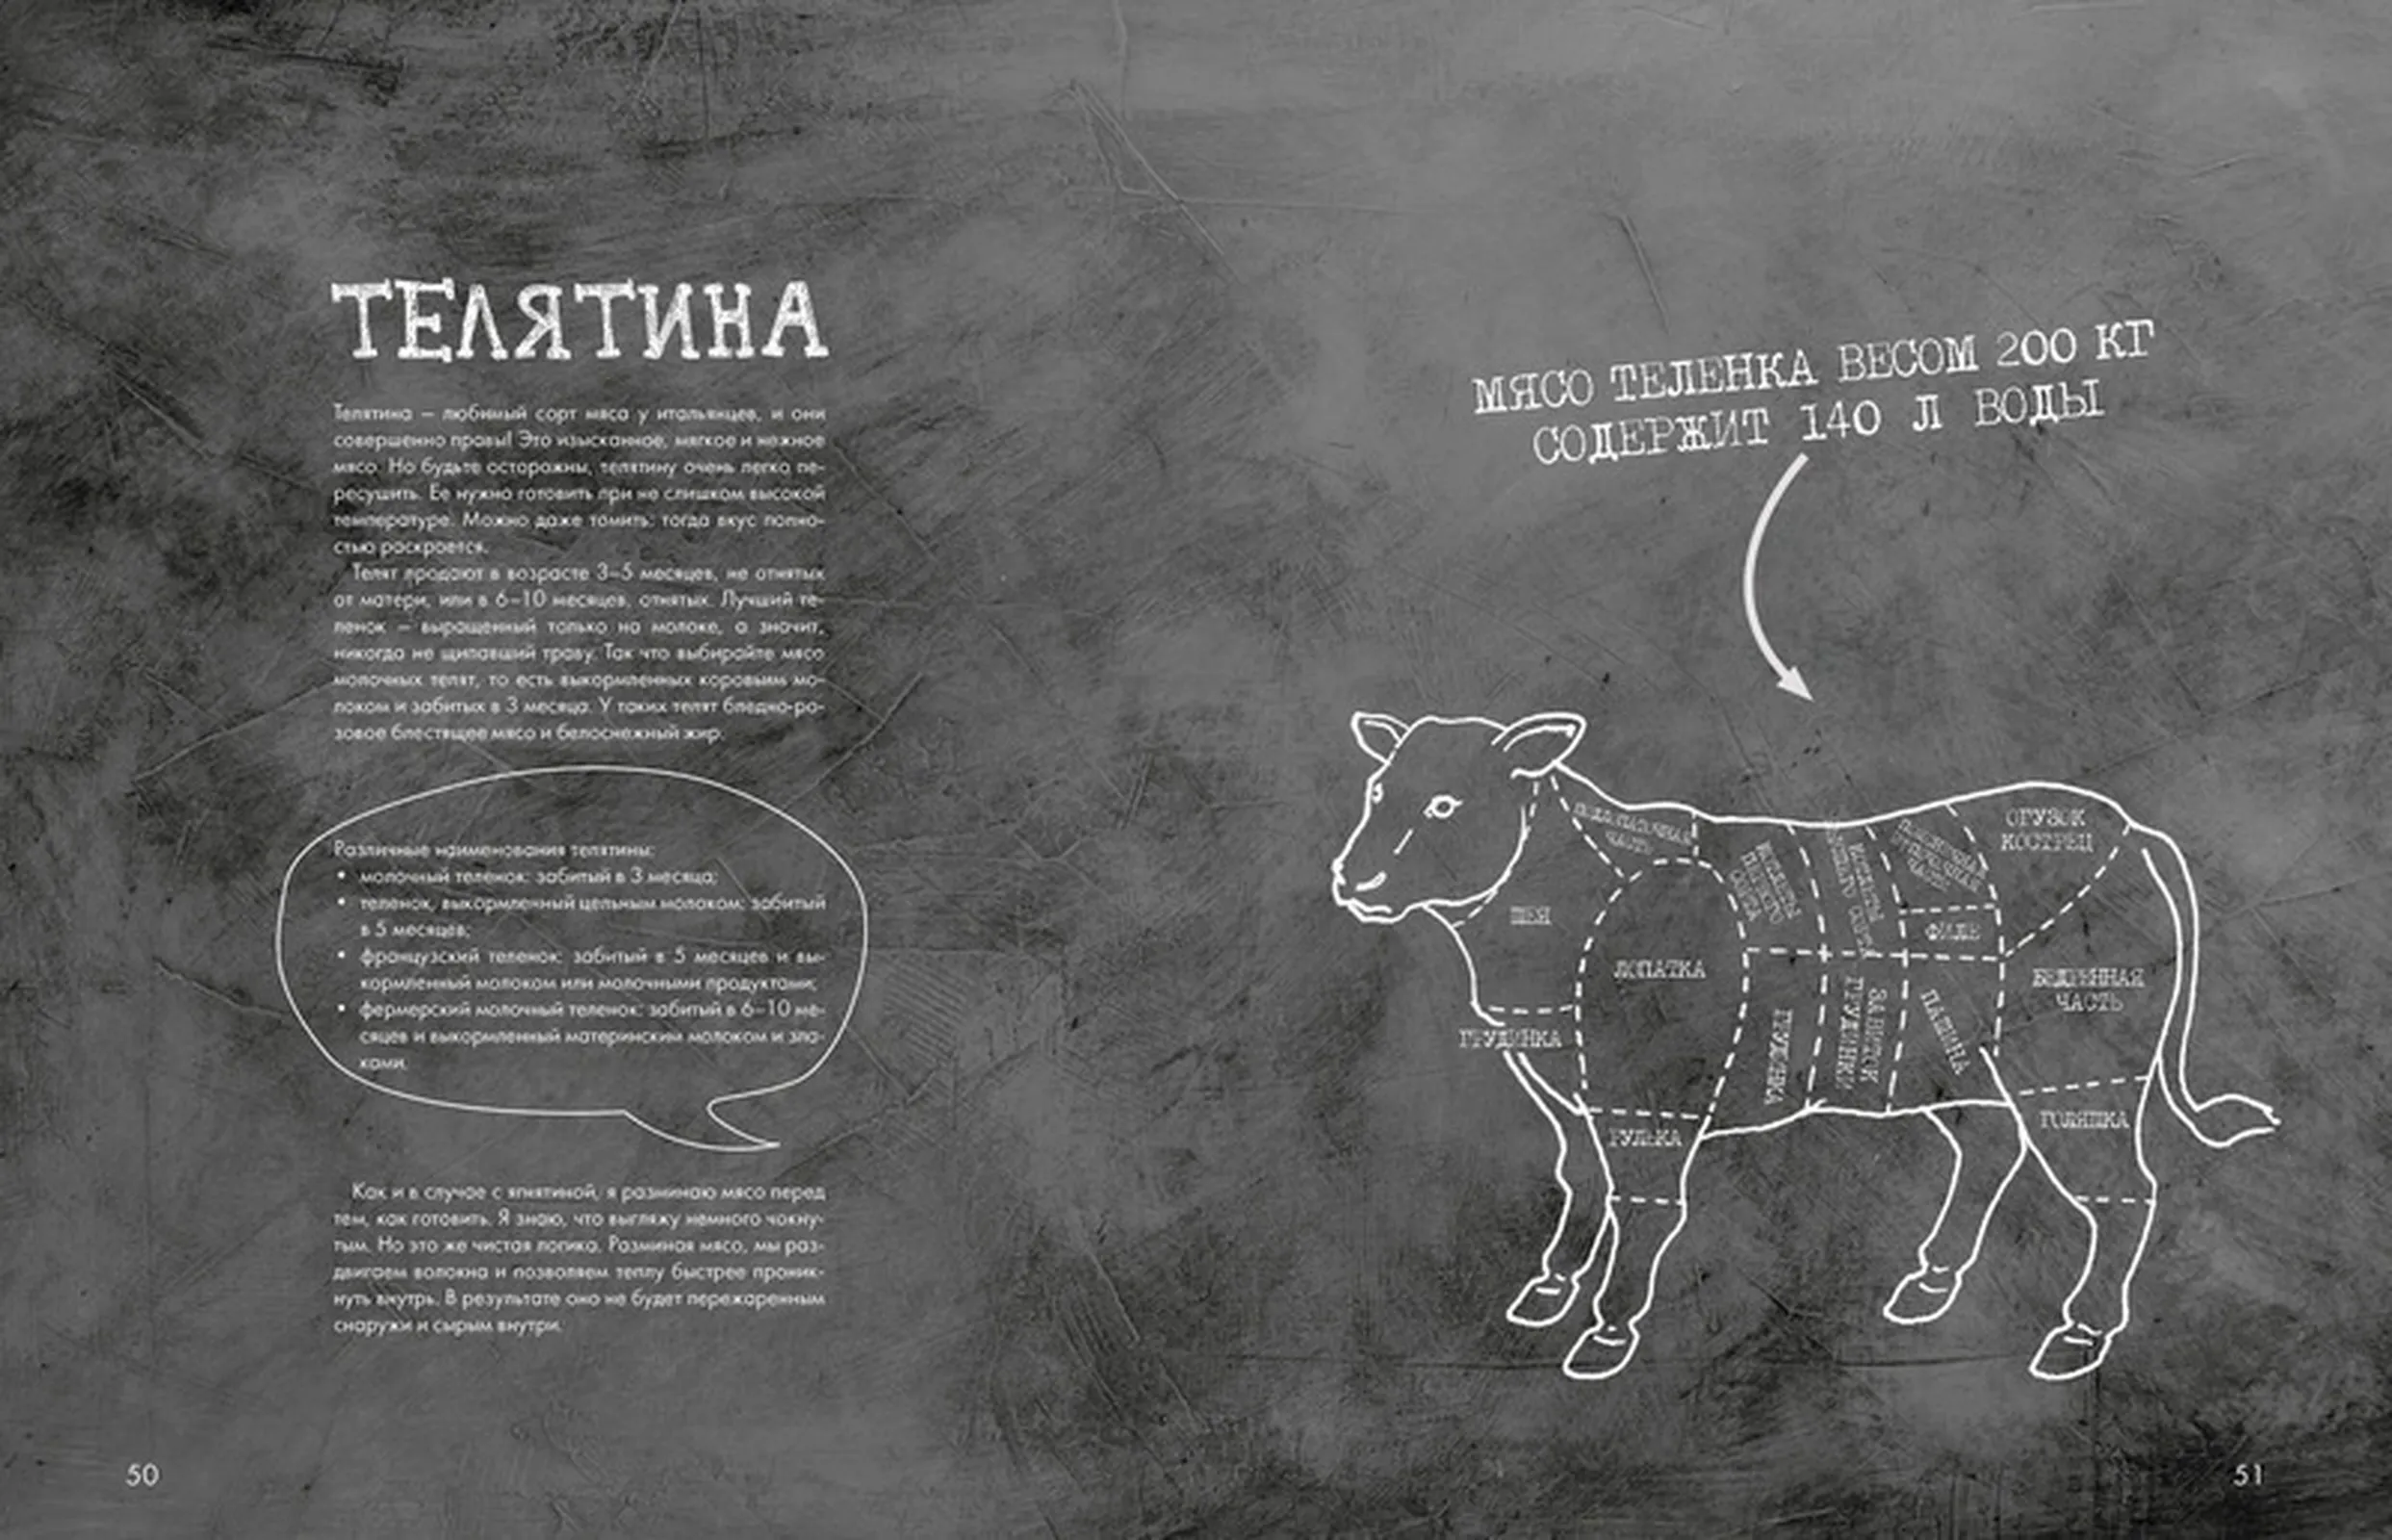 ТЕЛЯТИНА
Телятина – любимый сорт мяса у итальянцев, и они
совершенно правы! Это изысканное, мягкое и нежное
мясо. Но будьте осторожны, телятину очень легко пе-
ресушить. Ее нужно готовить при не слишком высокой
температуре. Можно даже томить: тогда вкус полно-
стью раскроется.
Телят продают в возрасте 3–5 месяцев, не отнятых
от матери, или в 6–10 месяцев, отнятых. Лучший те-
ленок – выращенный только на молоке, а значит,
никогда не щипавший траву. Так что выбирайте мясо
молочных телят, то есть выкормленных коровьим мо-
локом и забитых в 3 месяца. У таких телят бледно-ро-
зовое блестящее мясо и белоснежный жир.
Различные наименования телятины:
• молочный теленок: забитый в 3 месяца;
• теленок, выкормленный цельным молоком: забитый
в 5 месяцев;
• французский теленок: забитый в 5 месяцев и вы-
кормленный молоком или молочными продуктами;
• фермерский молочный теленок: забитый в 6–10 ме-
сяцев и выкормленный материнским молоком и зла-
ками.
Как и в случае с ягнятиной, я разминаю мясо перед
тем, как готовить. Я знаю, что выгляжу немного чокну-
тым. Но это же чистая логика. Разминая мясо, мы раз-
двигаем волокна и позволяем теплу быстрее проник-
нуть внутрь. В результате оно не будет пережаренным
снаружи и сырым внутри.
50
МЯСО ТЕЛЕНКА ВЕСОМ 200 КГ
СОДЕРЖИТ 140 Л ВОДЫ
ЧАСТЬ
ОГУЗОК
КОСТРЕЦ
ШЕЯ
ФИЛЕ
ЛОПАТКА
БЕДРЕННАЯ
ЧАСТЬ
ГРУДИНКА
ГРУДИНКА
ЗАВИТОК
ГРУДИНКИ
ПАШИНА
РУЛЬКА
ГОЛЯШКА
51